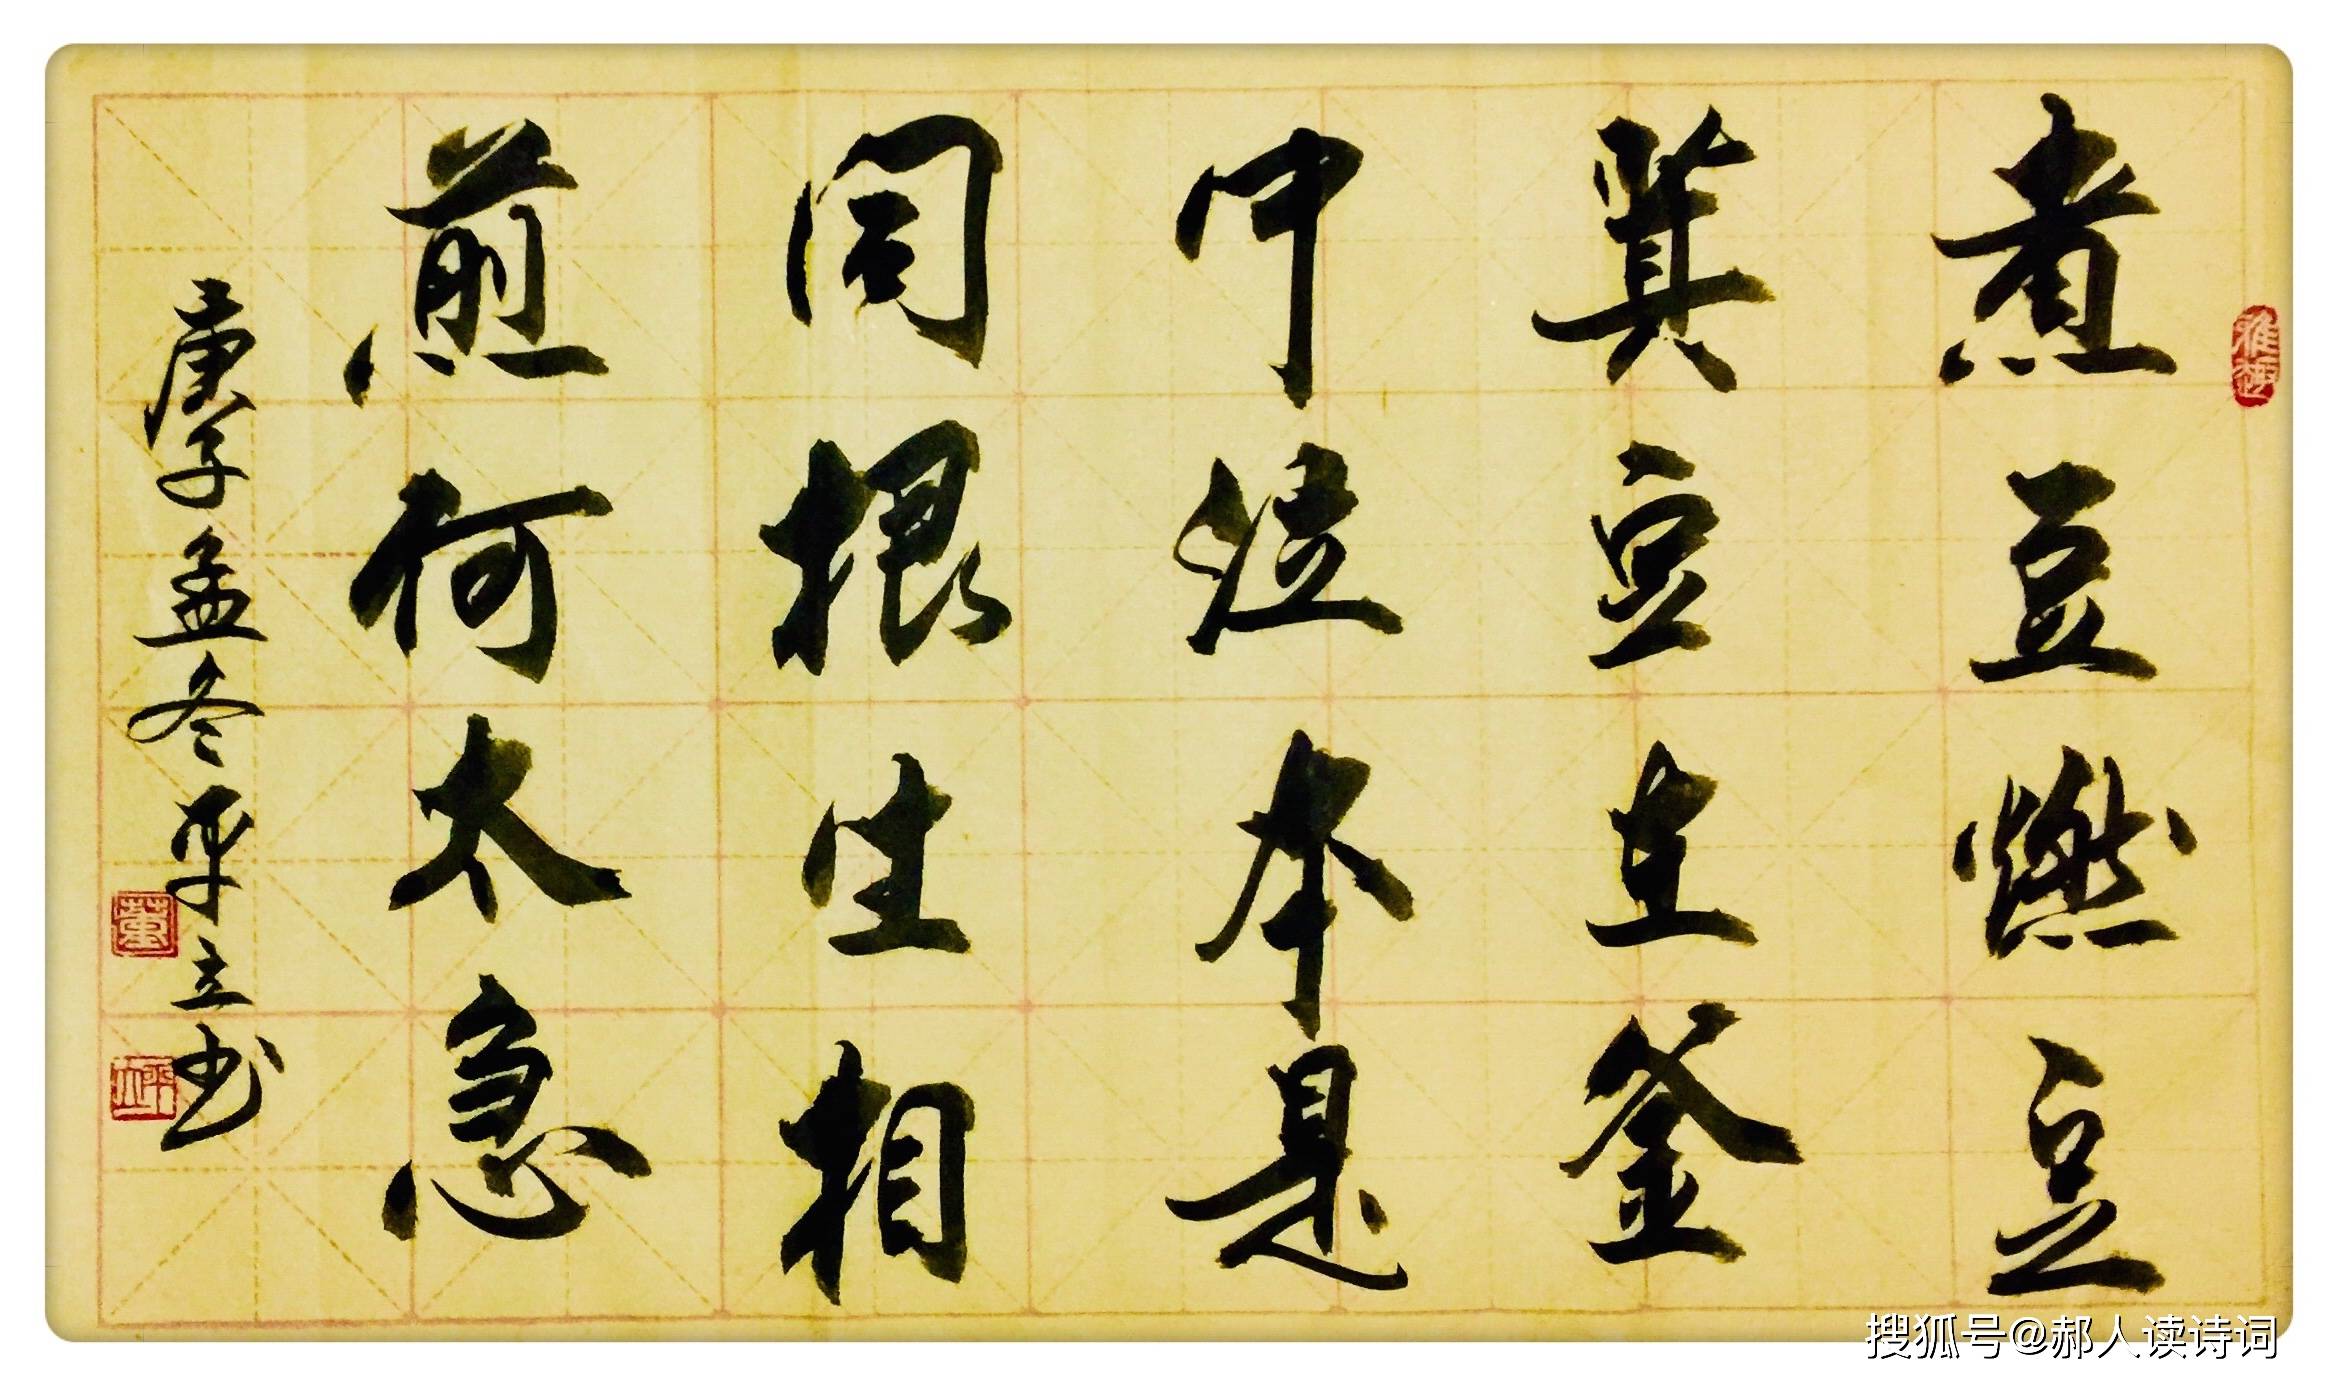 煮豆燃豆
萁豆在釜
中泣本是
同根生相
煎何太急
庚子孟冬平立书
搜狐号@郝人读诗词